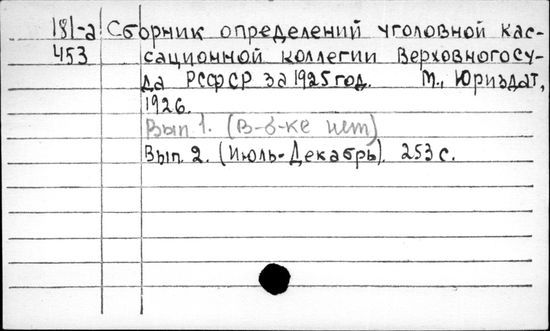 181-а Сборник определений уголовной кас-
453 сационной коллегии Верховного су-
да РСФСР за 1925 год. М., Юриздат,
1926.
Вып. 1. (В б-ке нет)
Вып. 2. (Июль-Декабрь). 253 с.